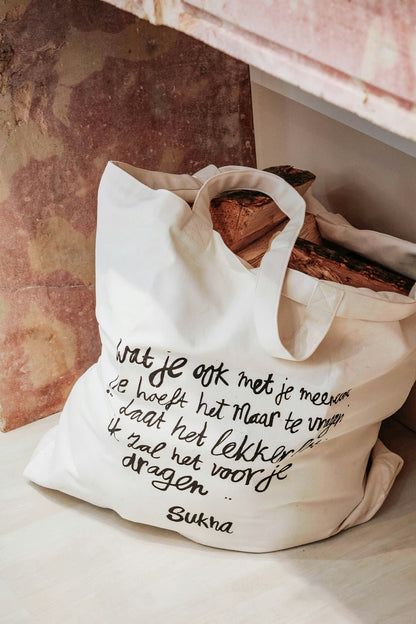 wat je ook met je mee
je hoeft het maar te vragen
laat het lekker
ik zal het voor je
dragen
Sukha